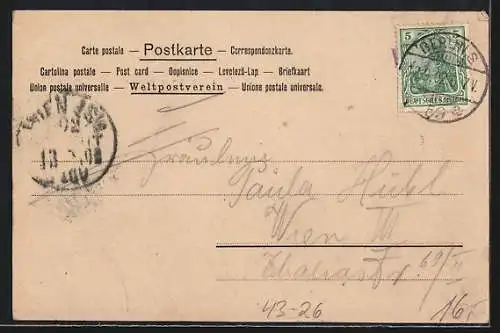 Carte postale — Postkarte — Correspondenzkarte.
Cartolina postale — Post card — Dopisnice — Levelező-Lap — Briefkaart
Union postale universelle — Weltpostverein — Unione postale universale.
5
BERLIN S
WIEN
Fräulein
Paula Hühl
Wien III
69/II
43-26
16,-